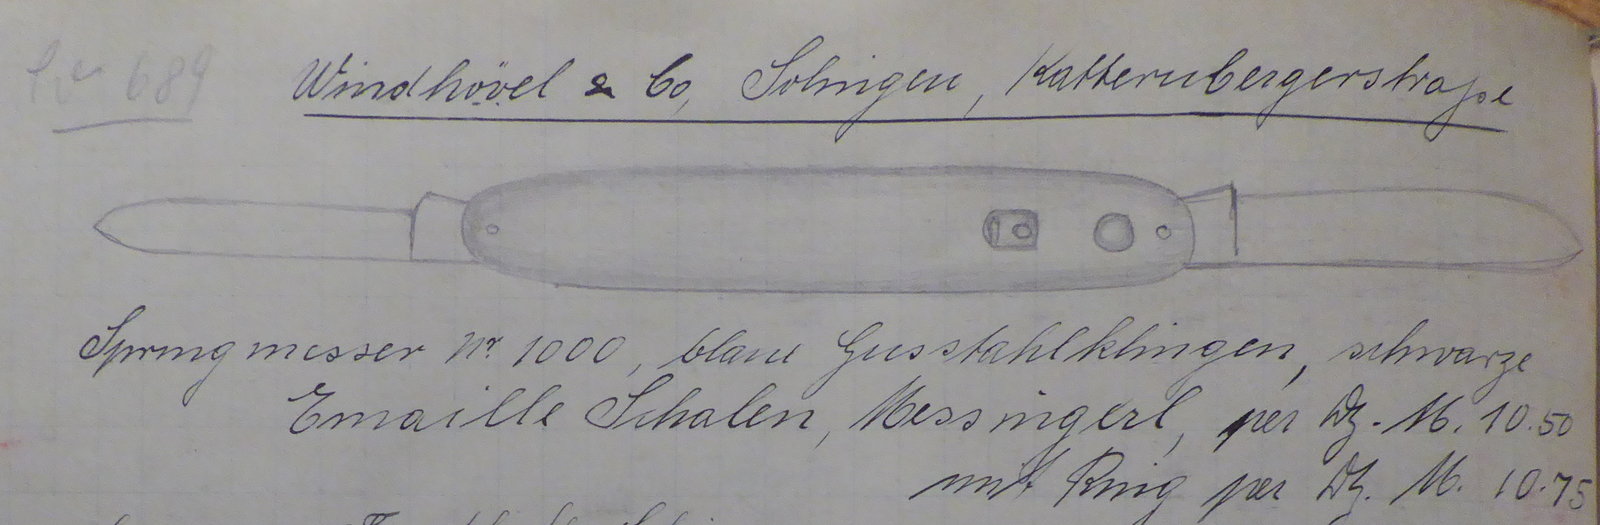 689
Windhövel & Co, Solingen, Katternbergerstraße
Springmesser Nr. 1000, blaue Gusstahlklingen, schwarze
Emaille Schalen, Messingerl, per Dz. M. 10.50
mit Ring per Dz. M. 10.75